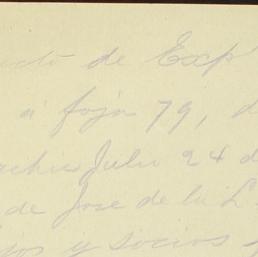 de Exp
a foja 79, d
Julio 24 d
de Jose de la L
y socios